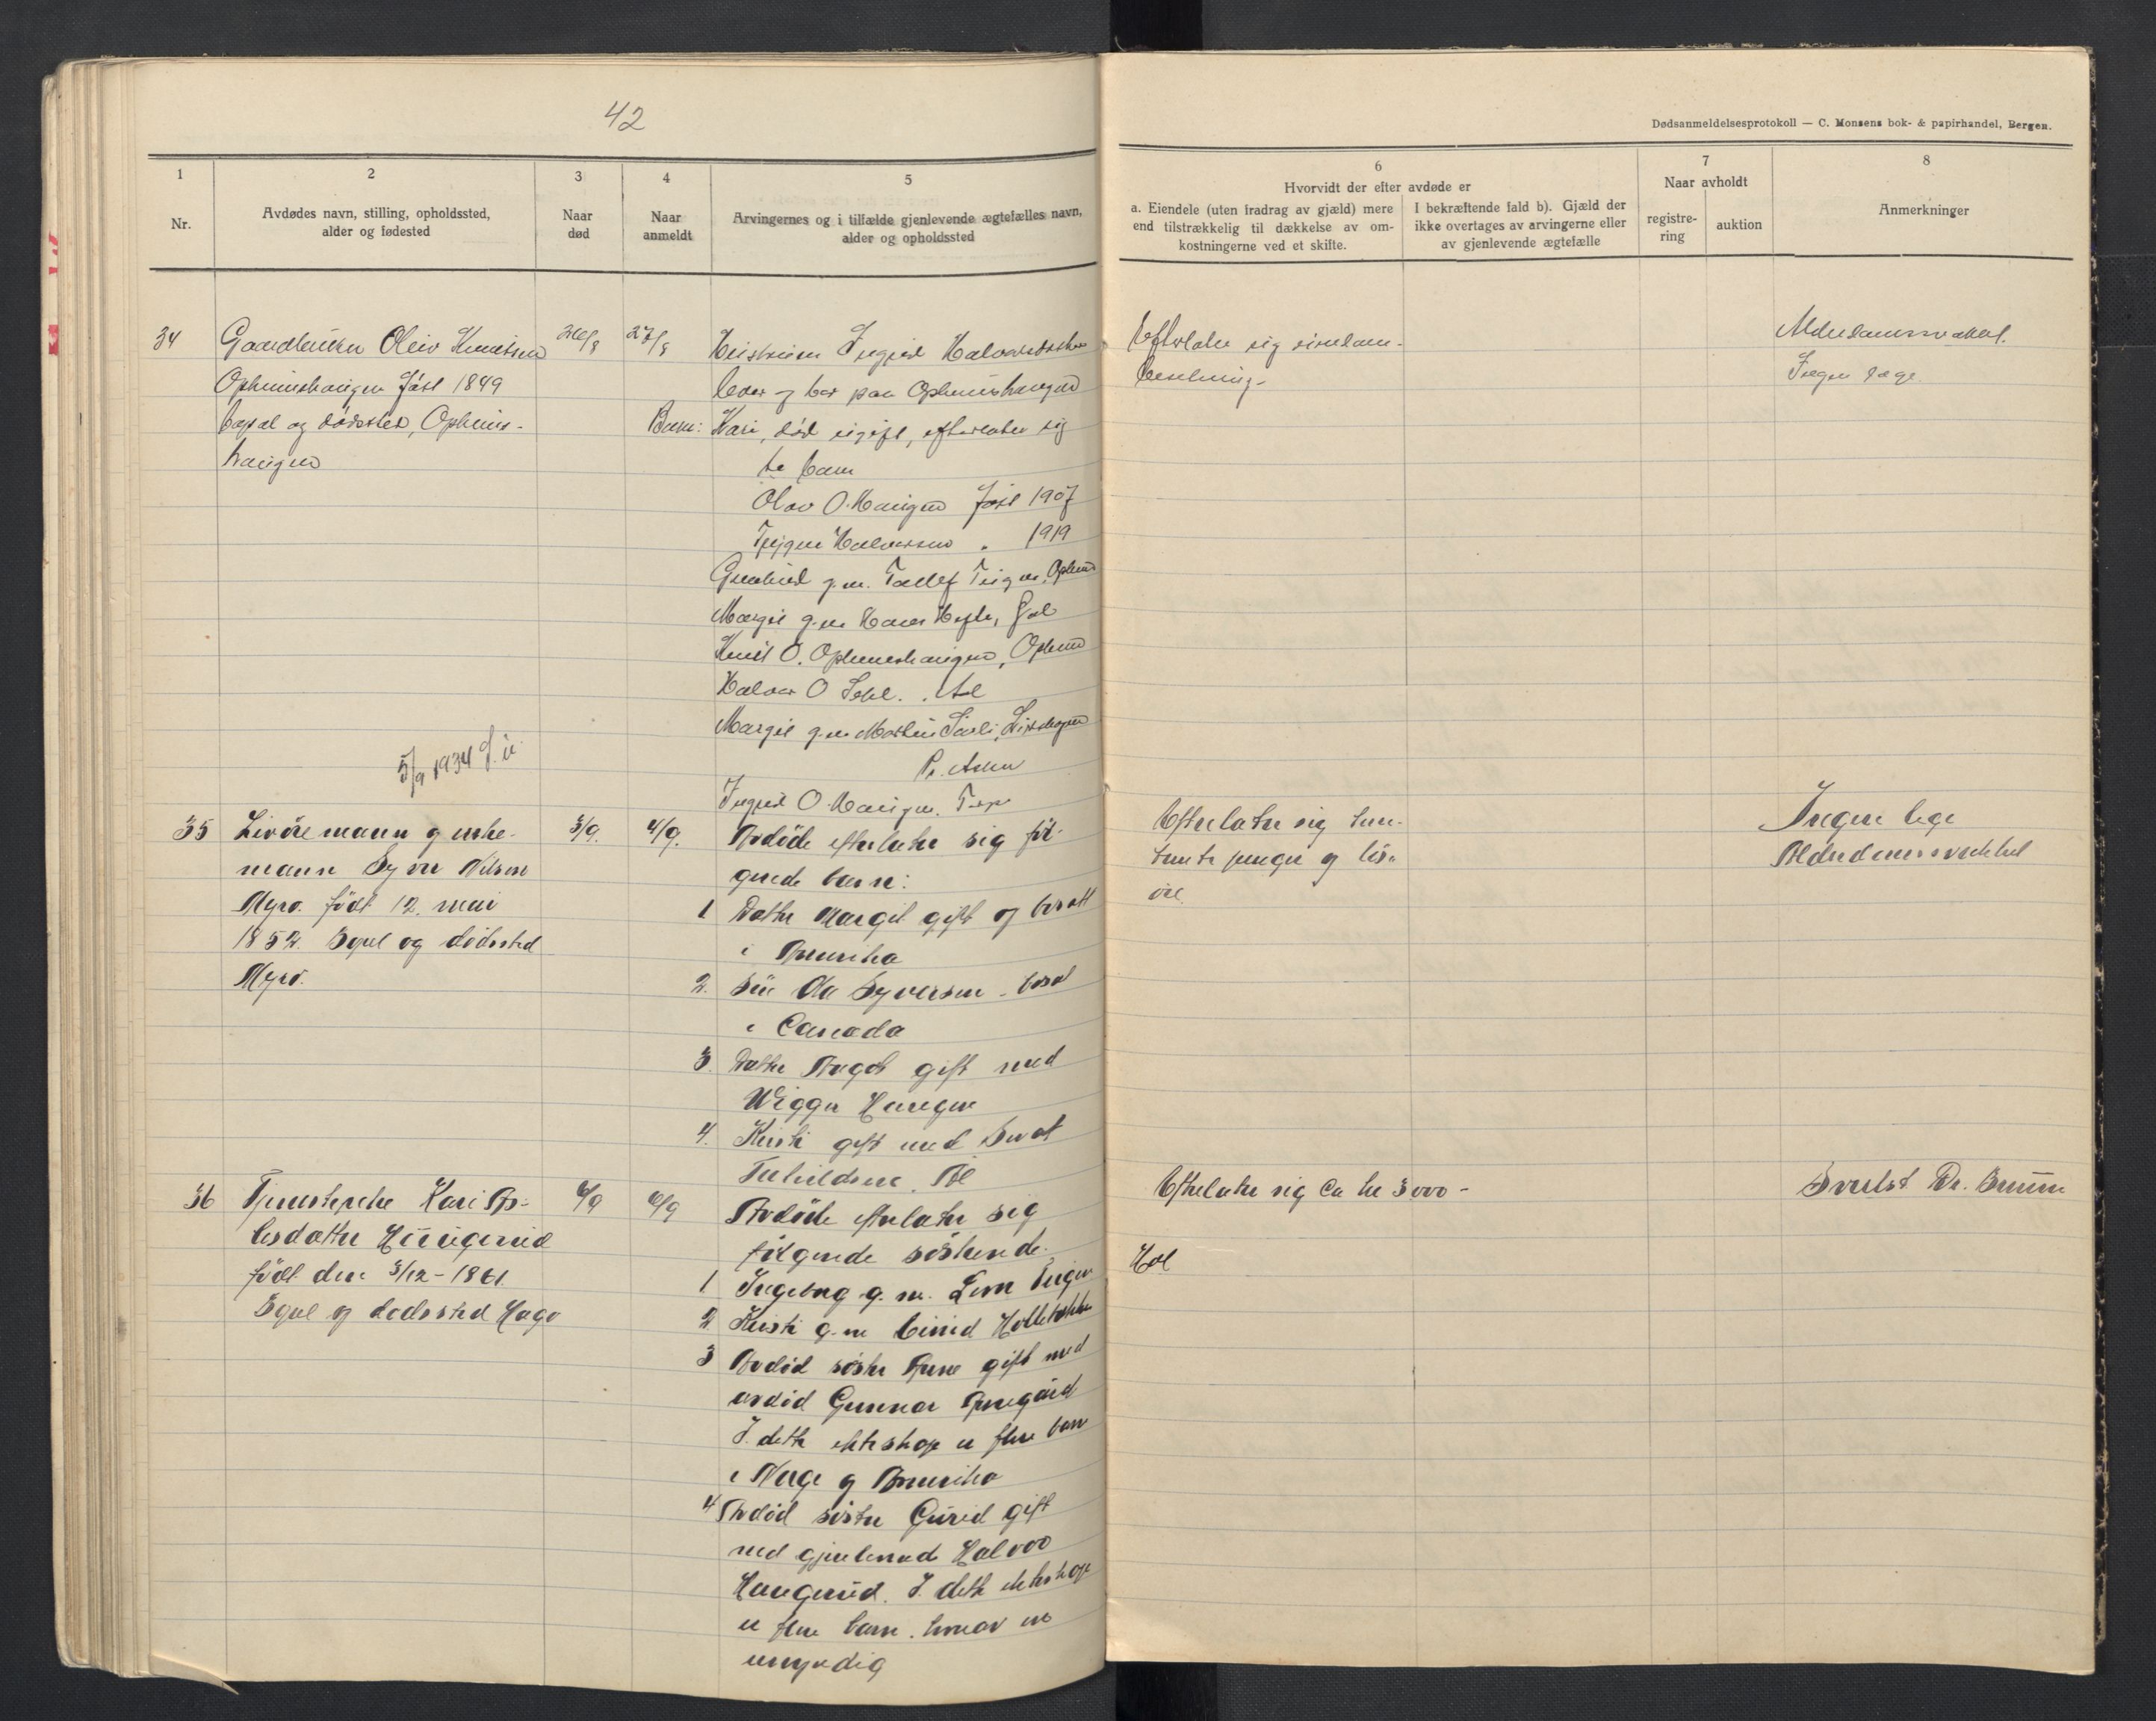 42
Dødsanmeldelsesprotokoll — C. Monsens bok- & papirhandel, Bergen.
1
2
3
4
5
6
7
8
Nr.
Avdødes navn, stilling, opholdssted,
alder og fødested
Naar
død
Naar
anmeldt
Arvingernes og i tilfælde gjenlevende ægtefælles navn,
alder og opholdssted
Hvorvidt der efter avdøde er
a. Eiendele (uten fradrag av gjæld) mere
end tilstrækkelig til dækkelse av om-
kostningerne ved et skifte.
I bekræftende fald b). Gjæld der
ikke overtages av arvingerne eller
av gjenlevende ægtefælle
Naar avholdt
registre-
ring
auktion
Anmerkninger
34
Gaardbruker Oleiv Knutsen
Opheimshaugen født 1849
bopæl og dødssted, Opheims-
haugen
26/8
27/8
Ingrid Halvardsdtr
lever og bor paa Opheimshaugen
Barn: Kari, død ugift, efterlater sig
to barn
Olav O. Haugen født 1907
Trygve Halvorsen " 1919
Gunhild g.m. Tollef Teigen, Opheim
Margit g.m. Hans Hefte, Gol
Knut O. Opheimshaugen, Opheim
Halvor O
Margit g.m. Martin
Ingrid O. Haugen, Torpo
Efterlater sig
Alderdomssvakhet.
Ingen læge
5/9 1934
35
Livøremann og enke-
mann Syver Nilsen
Myro. født 12. mai
1852. Bopel og dødssted
Myro.
3/9.
4/9.
Avdøde efterlater sig føl-
gende barn:
1 Datter Margit gift og bosatt
i Amerika
2. Søn Ola Syversen - bosat
i Canada
3. Datter Aagot gift med
Wigger Haugen
4. Kirsti gift med
Torhildsen. Ål
Efterlater sig
penger og løs-
øre
Ingen lege
Alderdomssvakhet
36
Tjenestepike Kari As-
lesdatter Haugerud
født den 3/12 - 1861
Bopel og dødssted Hago
6/9
6/9
Avdøde efterlater sig
følgende søskende.
1 Ingeborg g. m. Teigen
2 Kirsti g. m. Eivind
3 Avdød søster Anne gift med
avdød Gunnar
I dette ekteskap er flere barn
i Norge og Amerika
4 Avdød søster Guri gift
med gjenlevende Halvor
Haugerud. I dette ekteskap
er flere barn. hvorav en
umyndig
Efterlater sig ca kr 3000 -
Hol